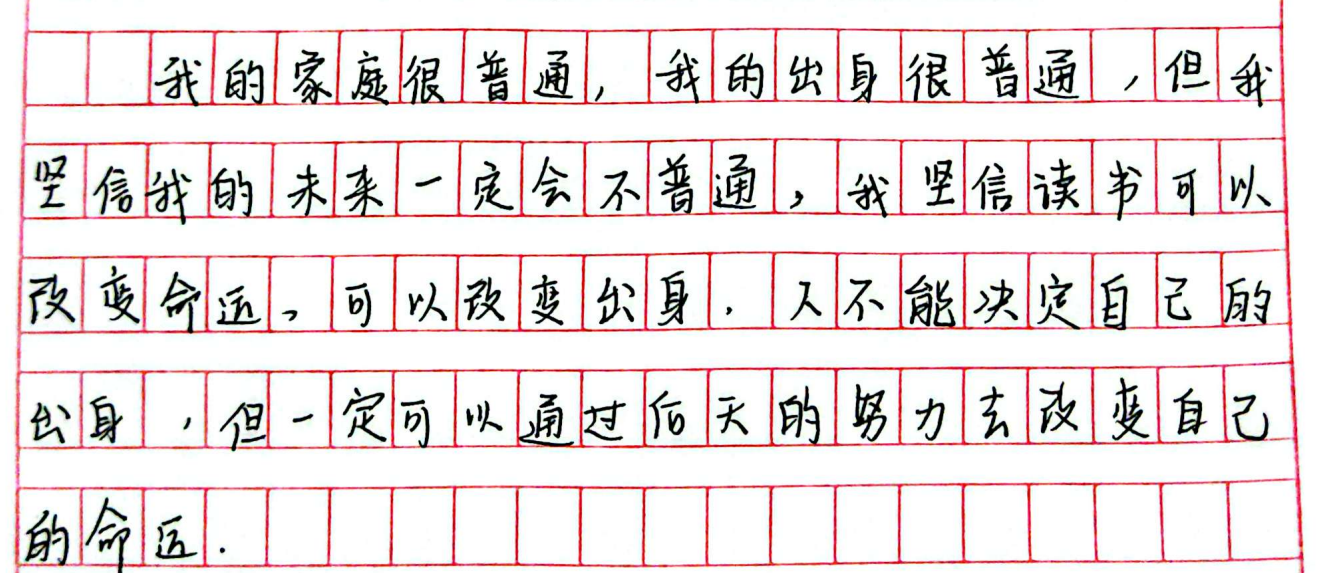 我的家庭很普通，我的出身很普通，但我
坚信我的未来一定会不普通，我坚信读书可以
改变命运、可以改变出身．人不能决定自己的
出身，但一定可以通过后天的努力去改变自己
的命运．